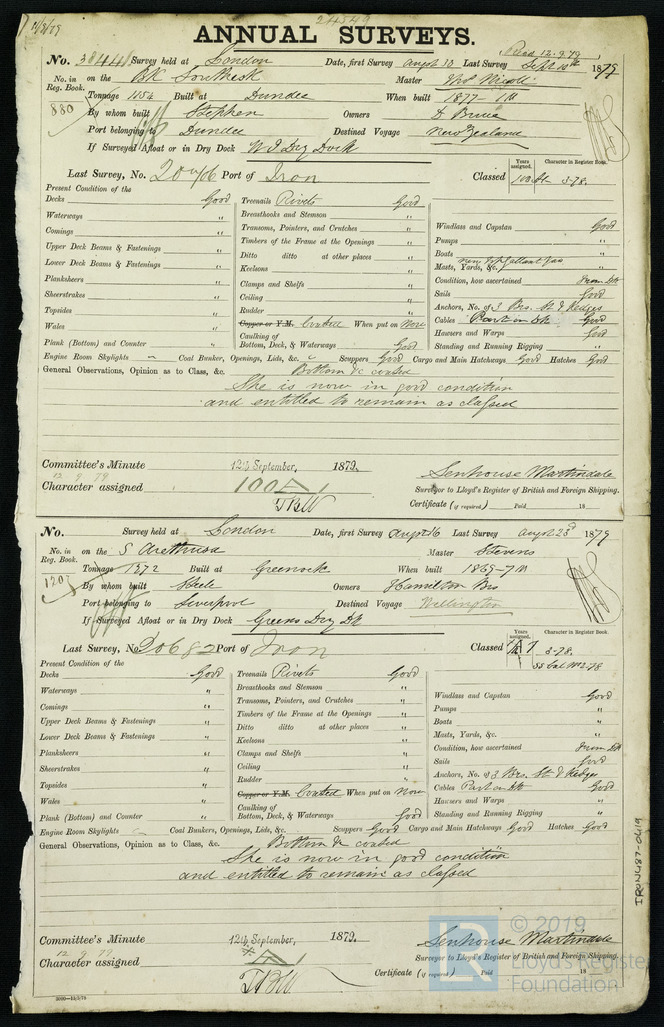 11/9/79
24549
ANNUAL SURVEYS.
Red 12.9.79
No. 38441 Survey held at London Date, first Survey augst 30 Last Survey Septr 10th 1879
No. in Reg. Book. on the Bk Southesk Master Nicoll
880 Tonnage 1154 Built at Dundee When built 1877-1M
By whom built Stephen Owners D Bruce
Port belonging to Dundee Destined Voyage New Zealand
If Surveyed Afloat or in Dry Dock W I Dry Dock
Last Survey, No. Port of Iron Classed Years assigned. 100 A1 Character in Register Book. 3-78.
Present Condition of the
Decks Good Treenails Rivets Good
Waterways " Breasthooks and Stemson " Windlass and Capstan Good
Comings " Transoms, Pointers, and Crutches " Pumps "
Upper Deck Beams & Fastenings " Timbers of the Frame at the Openings " Boats "
Lower Deck Beams & Fastenings " Ditto ditto at other places " Masts, Yards, &c. new
Planksheers " Keelsons " Condition, how ascertained From Dk
Sheerstrakes " Clamps and Shelfs " Sails Good
Topsides " Ceiling " Anchors, No. of 3 Brs. St & Kedges
Wales " Rudder " Cables Part on Dk Good
Plank (Bottom) and Counter " Copper or Y.M. Coated When put on Now Hawsers and Warps Good
Caulking of Bottom, Deck, & Waterways Good Standing and Running Rigging "
Engine Room Skylights — Coal Bunker, Openings, Lids, &c. Scuppers Good Cargo and Main Hatchways Good Hatches Good
General Observations, Opinion as to Class, &c. Bottom &c coated
She is now in good condition
and entitled to remain as classed
Committee's Minute 12th September, 1879.
12 9 79
Character assigned 100 A 1
TBW
Senhouse Martindale
Surveyor to Lloyd's Register of British and Foreign Shipping.
Certificate (if required) Paid 18
No. Survey held at London Date, first Survey augst 16 Last Survey augst 23d 1879
No. in Reg. Book. on the S Arethusa Master Stevens
1201 Tonnage 1272 Built at Greenock When built 1869-7M
By whom built Steele Owners Hamilton Bros
Port belonging to Liverpool Destined Voyage Wellington
If Surveyed Afloat or in Dry Dock Greens Dry Dk
Last Survey, No. 20682 Port of Iron Classed Years assigned. Character in Register Book. 3-78.
SS Cal No 2-78
Present Condition of the
Decks Good Treenails Rivets Good
Waterways " Breasthooks and Stemson " Windlass and Capstan Good
Comings " Transoms, Pointers, and Crutches " Pumps "
Upper Deck Beams & Fastenings " Timbers of the Frame at the Openings " Boats "
Lower Deck Beams & Fastenings " Ditto ditto at other places " Masts, Yards, &c. "
Planksheers " Keelsons " Condition, how ascertained From Dk
Sheerstrakes " Clamps and Shelfs " Sails Good
Topsides " Ceiling " Anchors, No. of 3 Brs. St & Kedges
Wales " Rudder " Cables Part on Dk Good
Plank (Bottom) and Counter " Copper or Y.M. Coated When put on Now Hawsers and Warps "
Caulking of Bottom, Deck, & Waterways Good Standing and Running Rigging "
Engine Room Skylights Coal Bunkers, Openings, Lids, &c. Scuppers Good Cargo and Main Hatchways Good Hatches Good
General Observations, Opinion as to Class, &c. Bottom &c coated
She is now in good condition
and entitled to remain as classed
Committee's Minute 12th September, 1879.
12 9 79
Character assigned A 1
TBW
Senhouse Martindale
Surveyor to Lloyd's Register of British and Foreign Shipping.
Certificate (if required) Paid 18
IRON487-0419
LR
© 2019
Lloyd's Register
Foundation